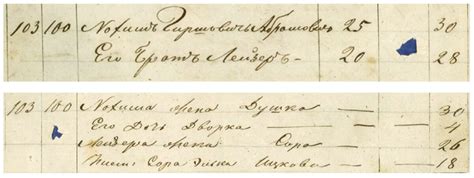 103 100 Нохимъ Гиршовичъ Абрамовичъ 25 30
Его Братъ Лейзеръ 20 28
103 100 Нохима жена Душка — — 30
Его Дочь Дворка — — 4
Лейзера жена Сора — 26
Сора Ицкова — 18